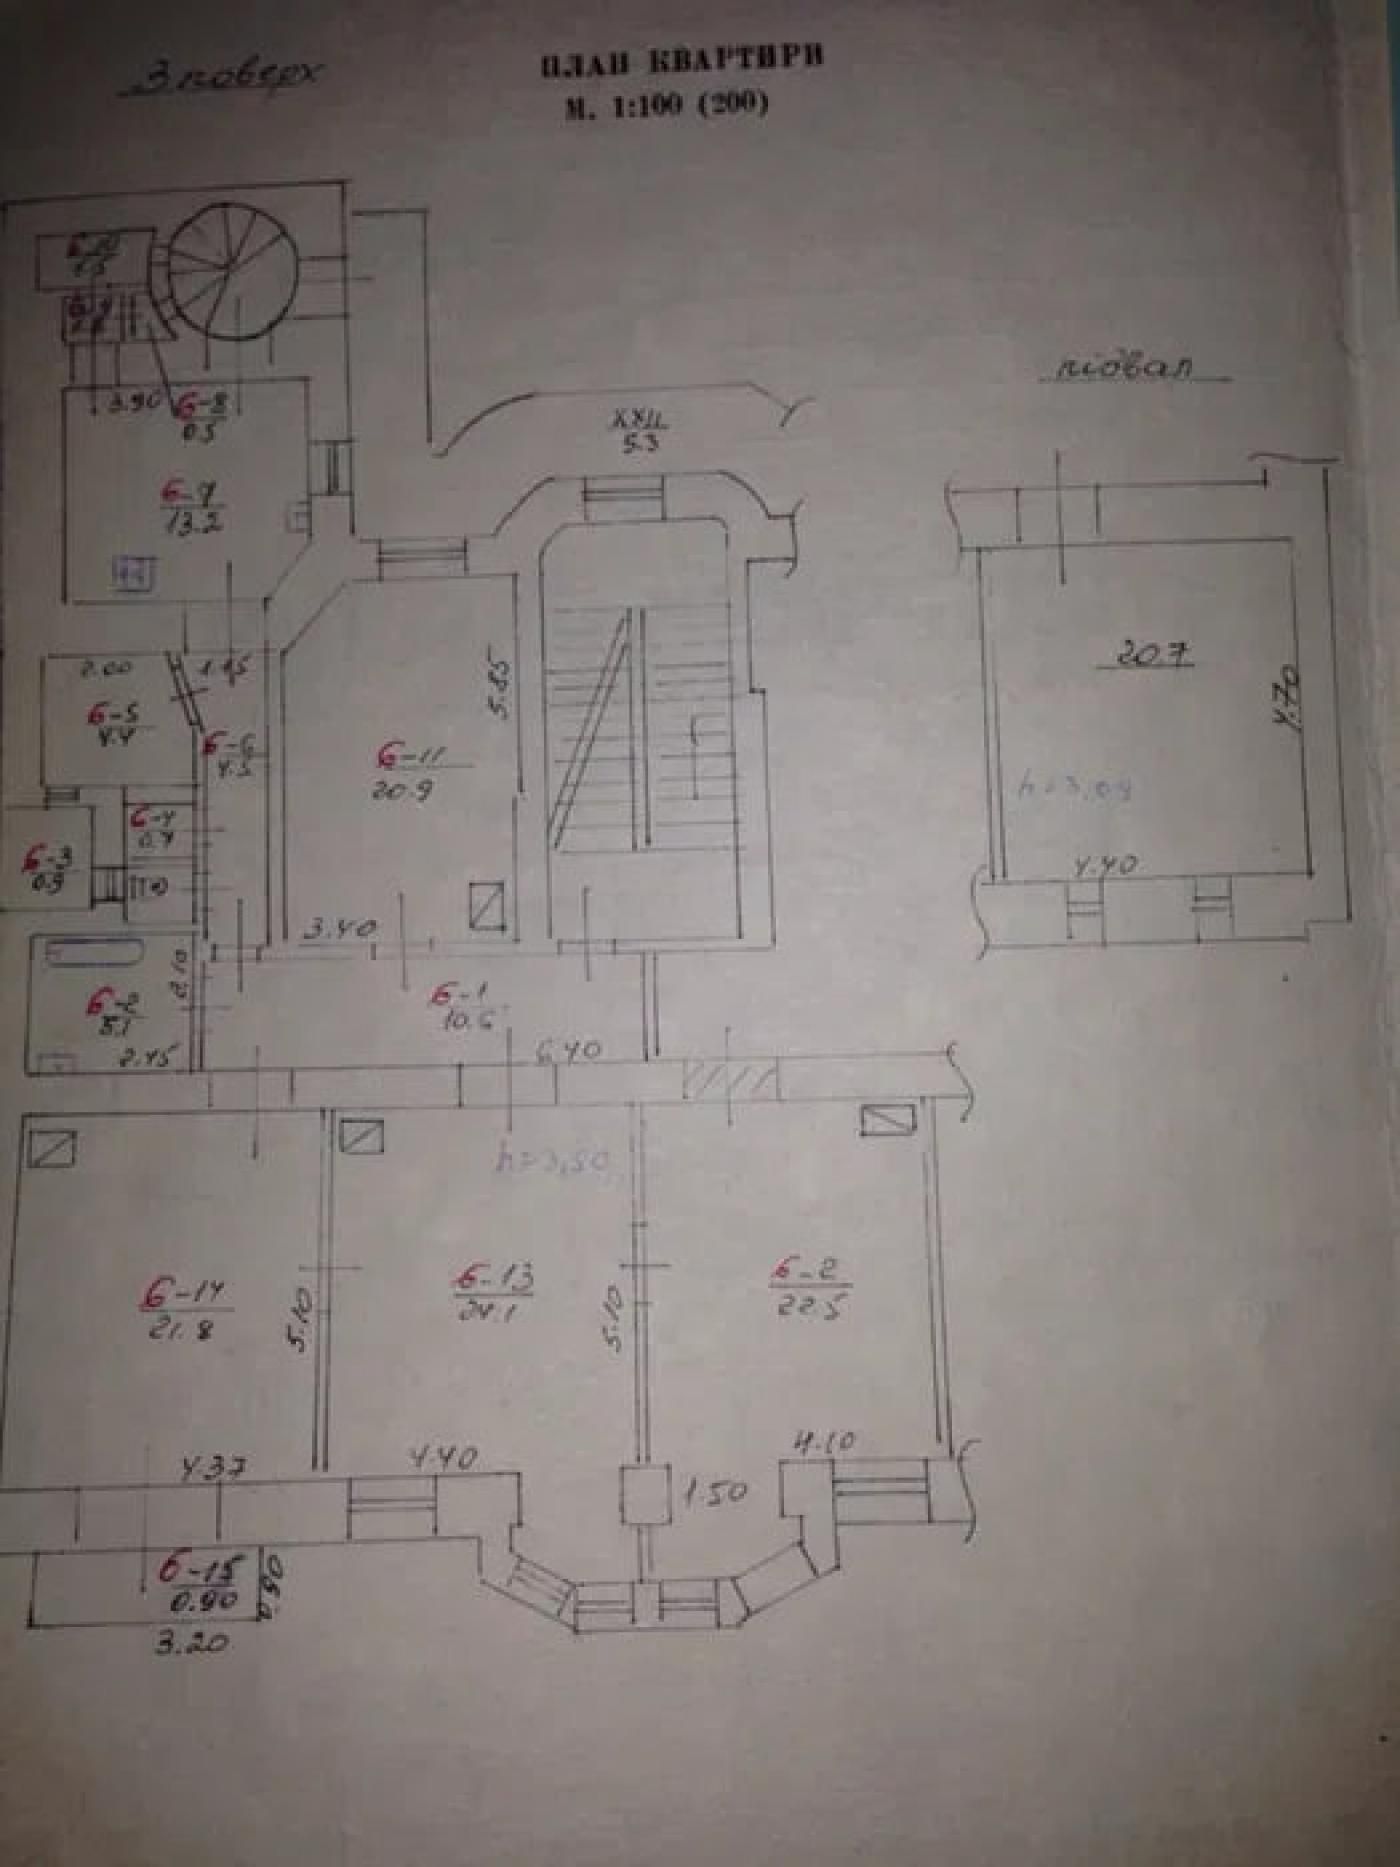 3 поверх
ПЛАН КВАРТИРИ
М. 1:100 (200)
6-10
6-9
3.90
6-8
0.5
6-7
13.2
5.3
підвал
20.7
4.70
h=3,04
4.40
2.00
1.15
6-5
4.4
6-6
4.5
5.85
6-11
20.9
6-4
0.7
6-3
0.9
3.40
2.10
6-2
5.1
2.45
6-1
10.6
6.40
h=3,50
6-14
21.8
5.10
6-13
24.1
5.10
6-2
22.5
4.37
4.40
1.50
4.10
6-15
0.90
0.90
3.20